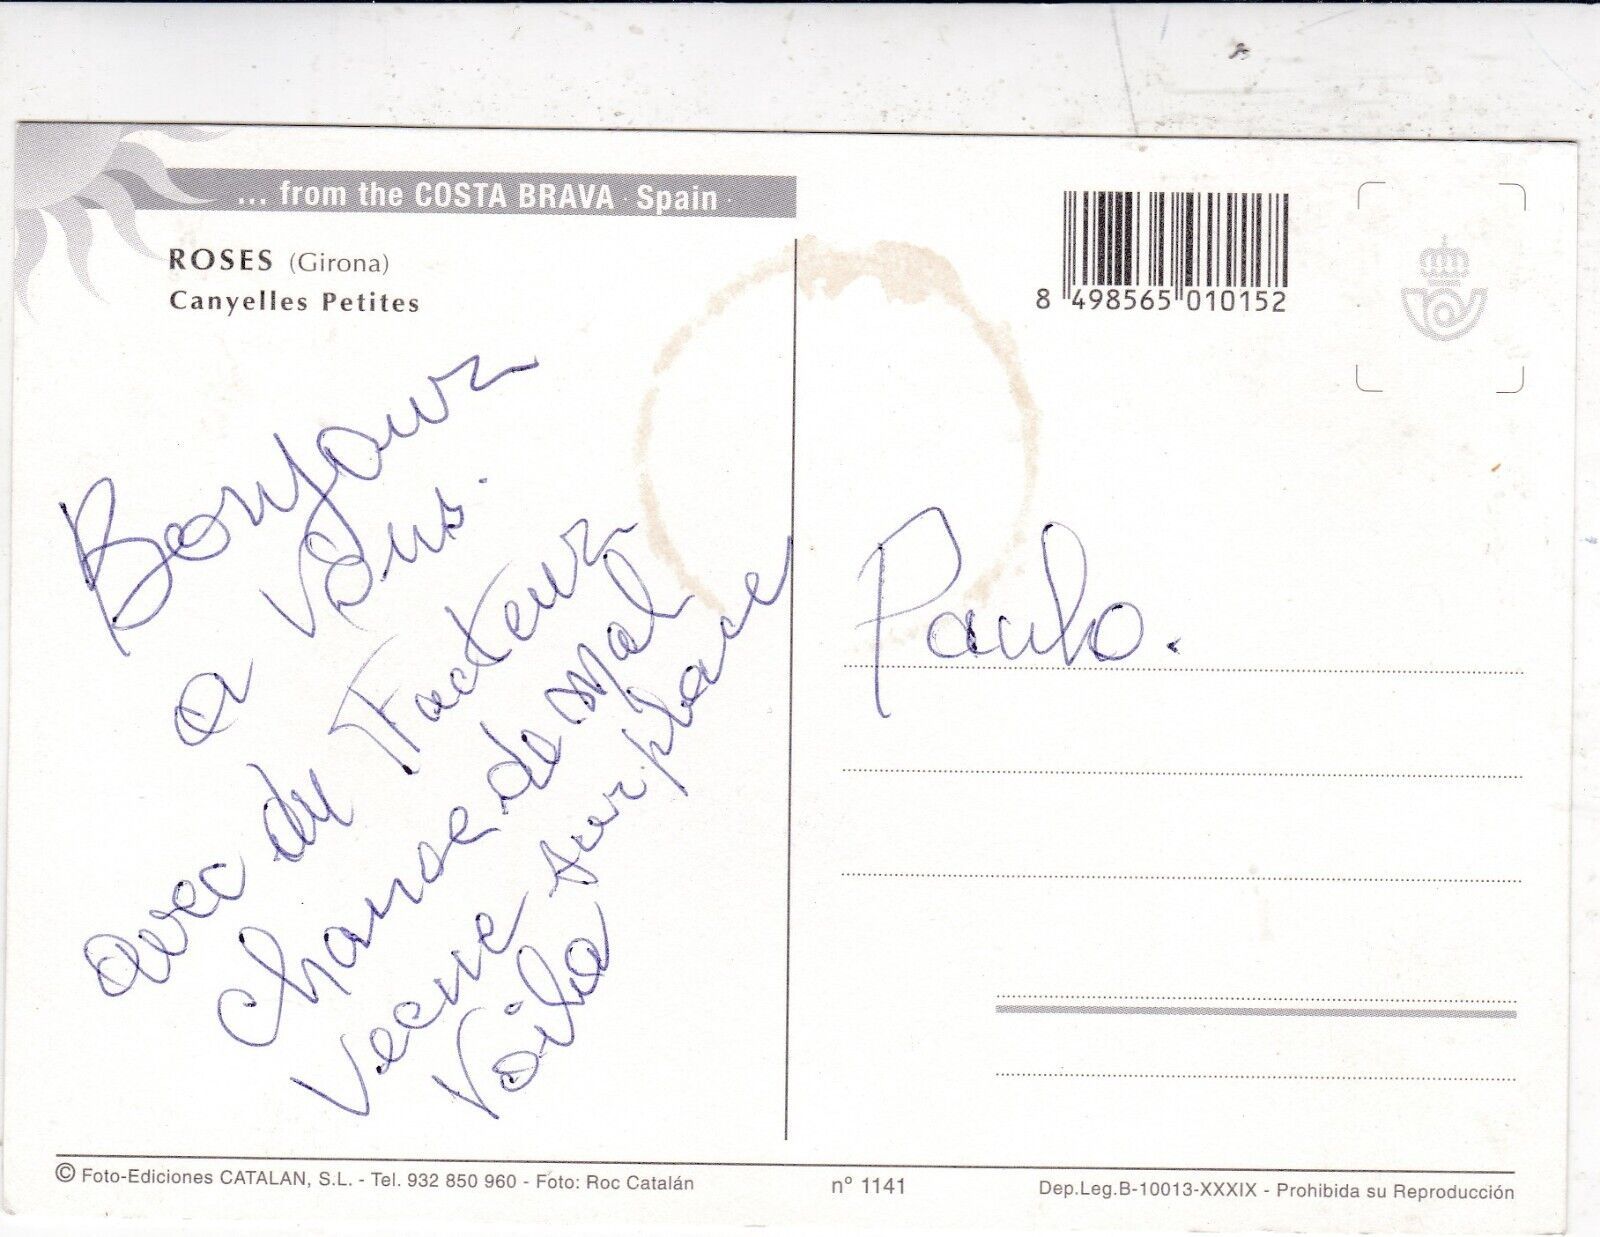 ... from the COSTA BRAVA · Spain ·
ROSES (Girona)
Canyelles Petites
8 498565 010152
Bonjour
a vous.
avec du Facteur
chance de mal
Vecne sur place
Voila
Paulo.
© Foto-Ediciones CATALAN, S.L. - Tel. 932 850 960 - Foto: Roc Catalán
nº 1141
Dep.Leg.B-10013-XXXIX - Prohibida su Reproducción